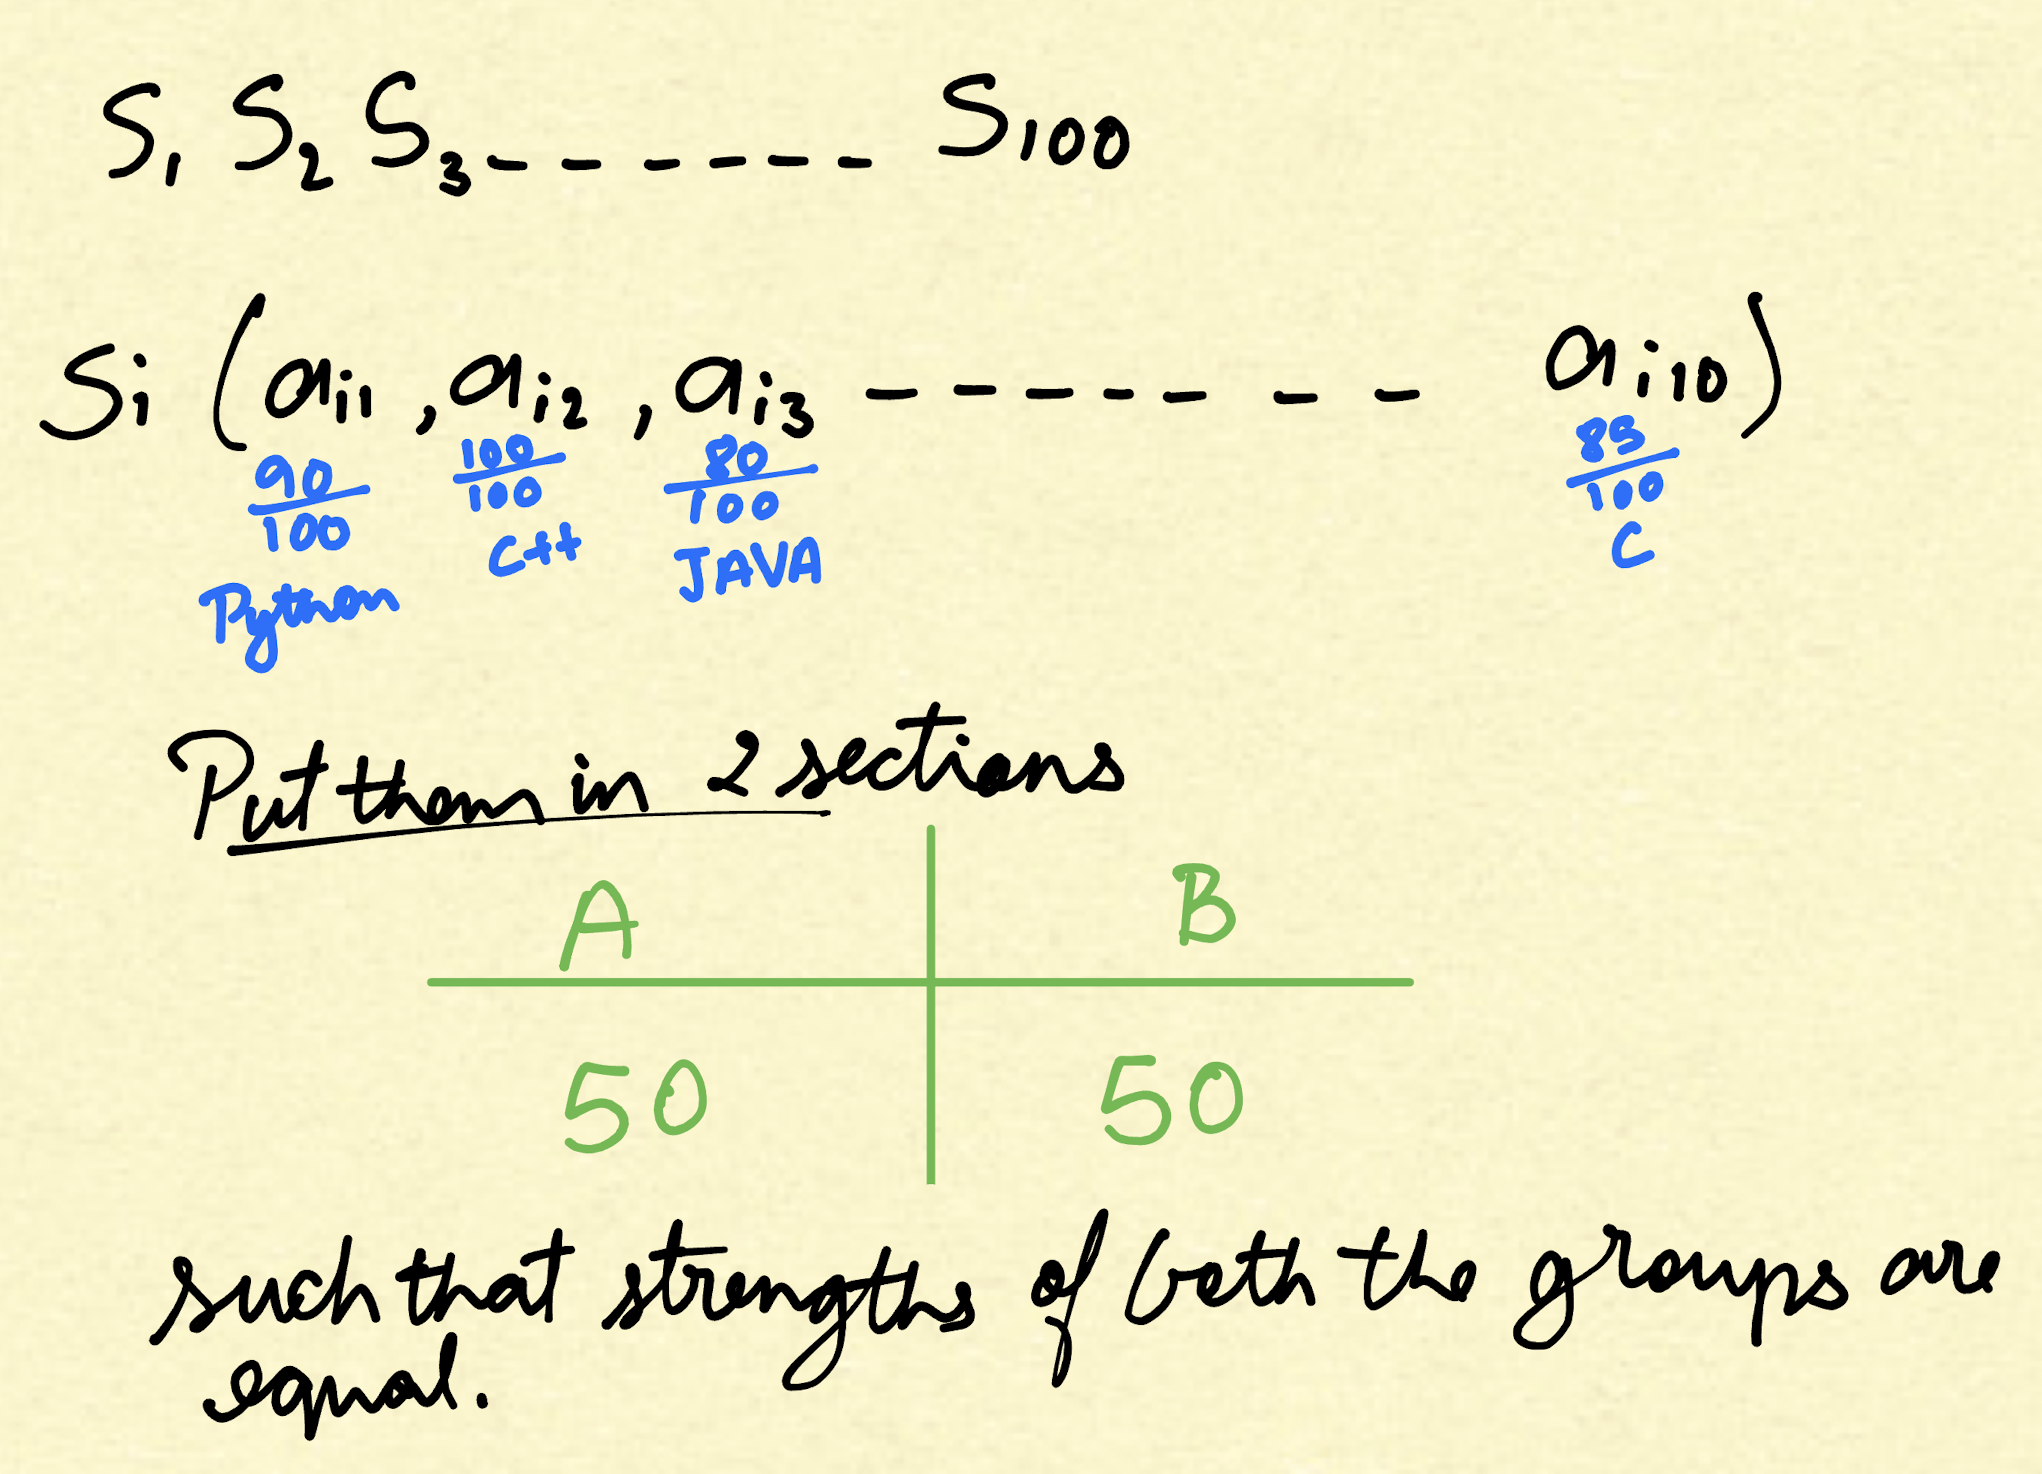 S₁ S₂ S₃ ------ S₁₀₀
Si (ai1, ai2, ai3 ------- ai10)
90/100 100/100 80/100 85/100
Python C++ JAVA C
Put them in 2 sections
A B
50 50
such that strengths of both the groups are
equal.